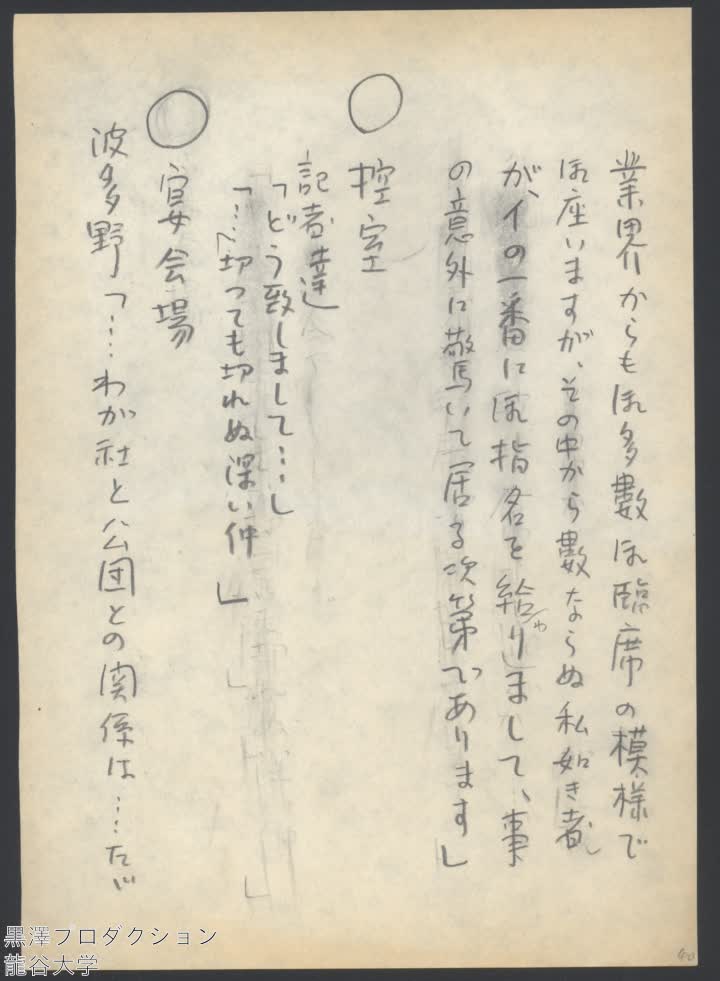 業界からも御多數御臨席の模様で
御座いますが、その中から數ならぬ私如き者
が、イの一番に御指名を給りまして、事
の意外に驚いて居る次第であります」
○控室
記者達
「どう致しまして…」
「…切っても切れぬ深い仲」
○宴会場
波多野「…わが社と公団との関係は…たゞ
黒澤プロダクション
龍谷大学